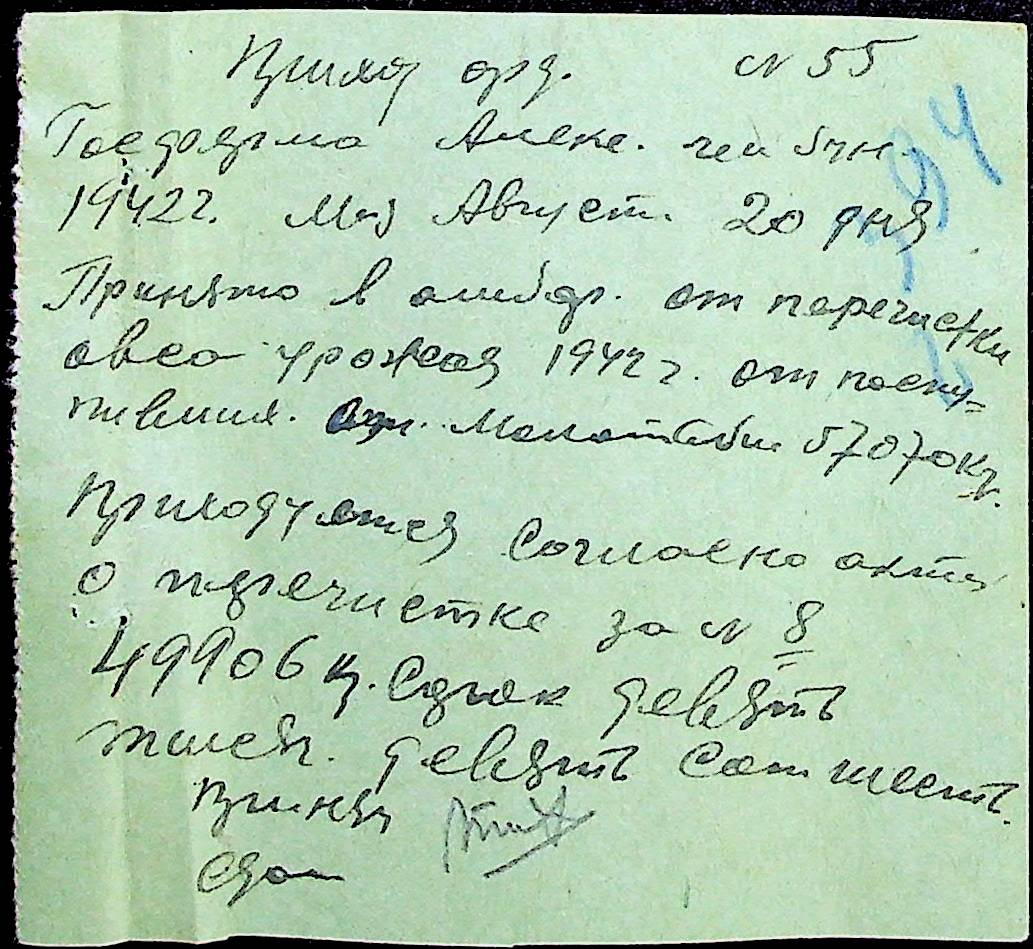 Приход орд. № 55
Госферма Алекс.
1942 г. М-ц Август. 20 дня
Принято в амбар. от перечистки
овса урожая 1942 г. от посту-
пивших. Молотьбы 57070 кг.
Приходуется Согласно акта
о перечистке за № 8
49906 кг. Сорок девять
тысяч. девять Сот шесть.
Принял
Сдал